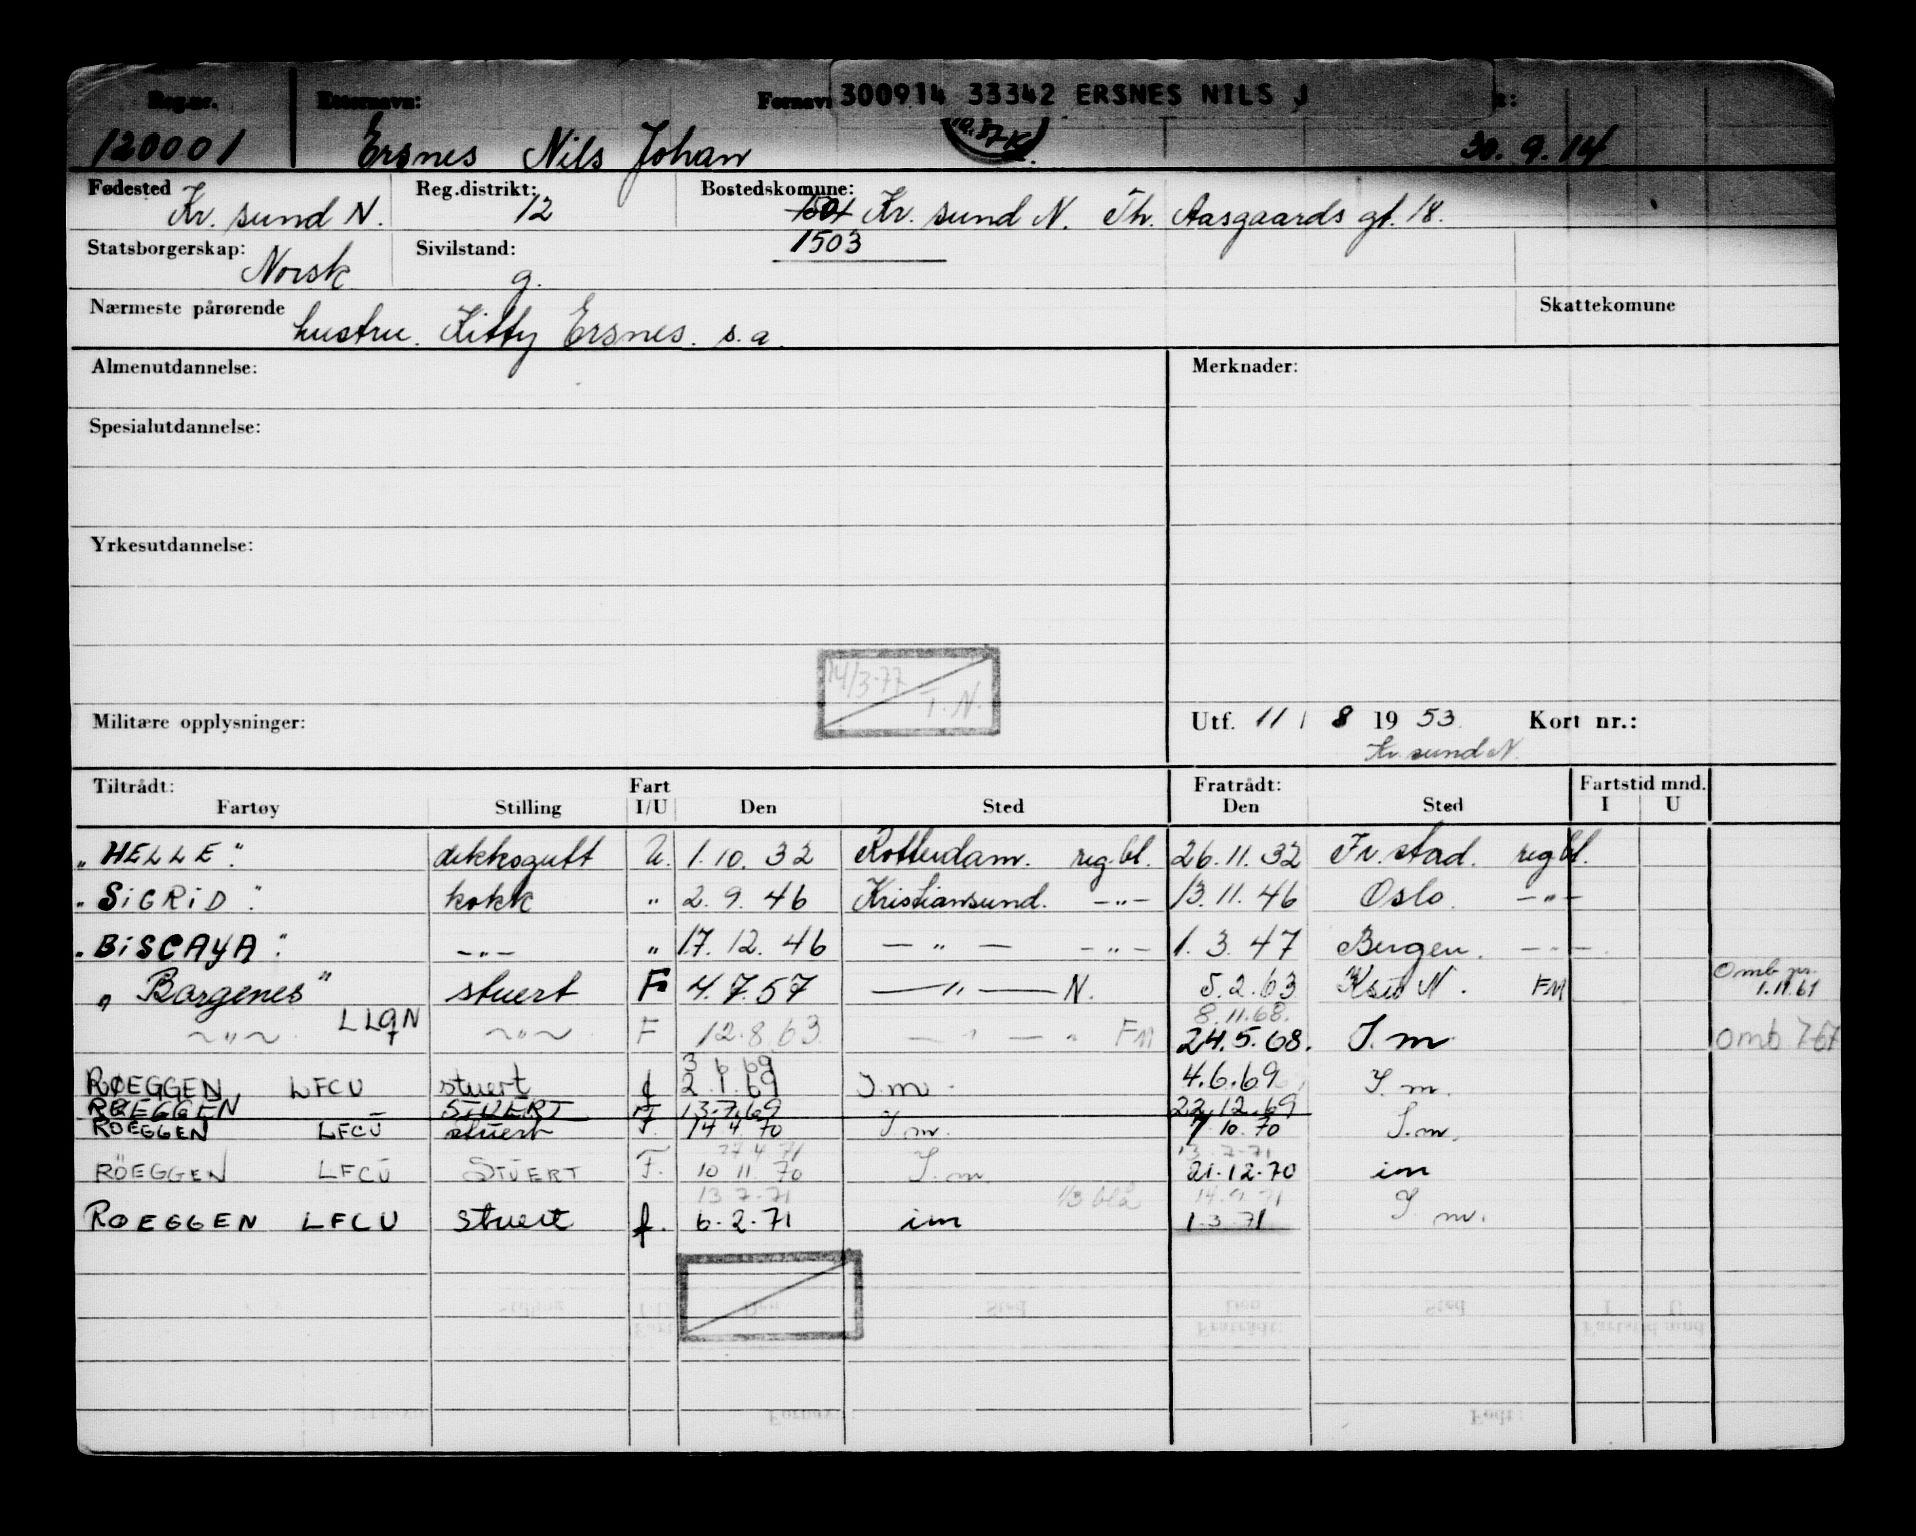 Reg.nr. Etternavn: Fornavn: 300914 33342 ERSNES NILS J
120001 Ersnes Nils Johan 30.9.14
Fødested Kr. sund N. Reg.distrikt: 12 Bostedskomune: 1501 Kr. sund N. Th. Aasgaards gt. 18.
Statsborgerskap: Norsk Sivilstand: g. 1503
Nærmeste pårørende hustru. Kitty Ersnes. s.a. Skattekomune
Almenutdannelse: Merknader:
Spesialutdannelse:
Yrkesutdannelse:
14/3-77 T.N.
Militære opplysninger: Utf. 11 / 8 19 53 Kort nr.:
Kr. sund N.
Tiltrådt: Fart Fratrådt: Fartstid mnd.
Fartøy Stilling I/U Den Sted Den Sted I U
"HELLE" dekksgutt U. 1.10.32 Rotterdam. reg.bl. 26.11.32 Fr.stad. reg.bl.
"SiGRiD" kokk " 2.9.46 Kristiansund. -"- 13.11.46 Oslo. -"-
"BiSCAYA" -"- " 17.12.46 -"- -"- 1.3.47 Bergen. -"-
"Borgenes" stuert F 4.7.57 -"- N. 5.2.63 Ksu N. FM Omb pr. 1.11.61
-"- LLQN -"- F 12.8.63 -"- FM 8.11.68. 24.5.68. I.m omb 7-67
3 6 69
RØEGGEN LFCU stuert f 2.1.69 I.m. 4.6.69 I.m.
RØEGGEN STUERT F 13.7.69 22.12.69
RØEGGEN LFCU stuert F. 14 4 70 I m. 7.10.70 I.m.
27 4 71 13-7-71
RÖEGGEN LFCU STUERT F. 10 11 70 I.m. 21.12.70 im
13 7-71 1/3 14.9.71
ROEGGEN LFCU stuert f. 6.2.71 im 1.3.71 I m.